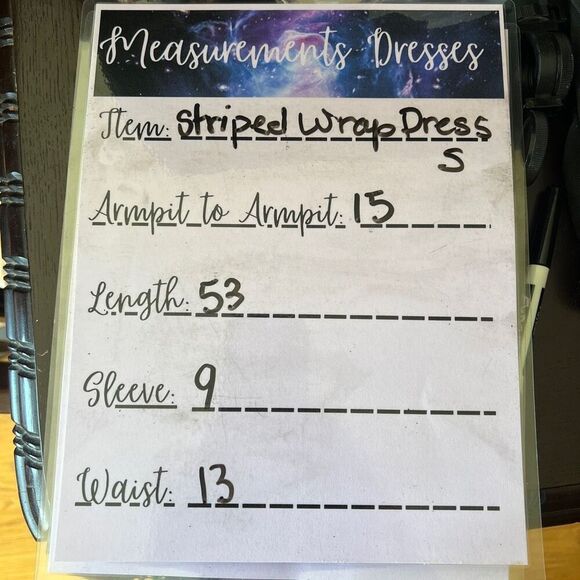 Measurements Dresses
Item: Striped Wrap Dress
S
Armpit to Armpit: 15
Length: 53
Sleeve: 9
Waist: 13